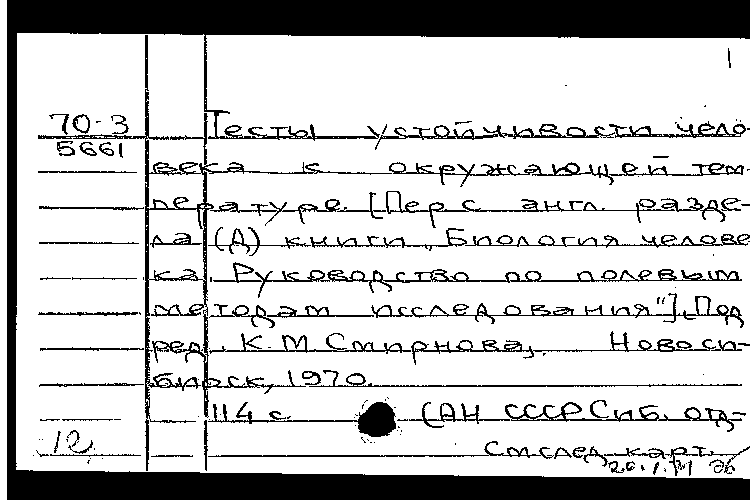 1
70-3
5661
Тесты устойчивости чело-
века к окружающей тем-
пературе. [Пер с англ. разде-
ла (Д) книги „Биология челове
ка. Руководство по полевым
методам исследования"]. Под
ред. К.М. Смирнова,. Новоси-
бирск, 1970.
114 с. (АН СССР. Сиб. отд-
12
См. след. карт.